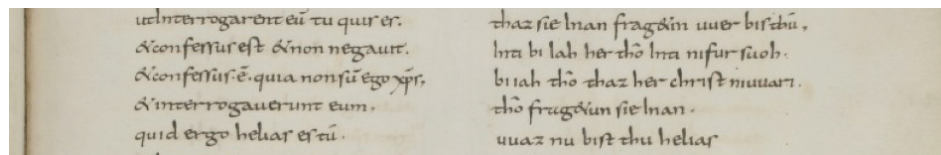 utInterrogarent eū tu quis es.
&confessus est &non negauit.
&confessus .ē. quia non sū ego xp̄s,
&interrogauerunt eum.
quid ergo helias es tū.
thaz sie Inan frag&in uuer bis thū,
Inti bi iah her thō Inti nifur suoh.
bi iah thō thaz her christ niuuari.
thō frag&un sie Inan.
uuaz nu bist thu helias